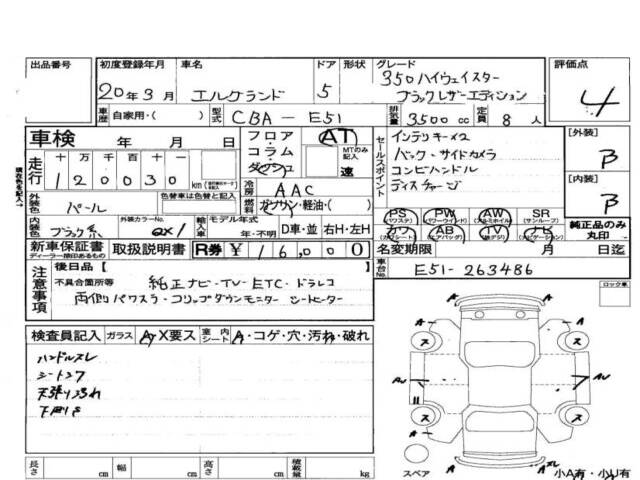 出品番号 初度登録年月 車名 ドア 形状 グレード 評価点
20年3月 エルグランド 5 350ハイウェイスター
ブラックレザーエディション 4
車歴 自家用・( ) 型式 CBA-E51 排気量 3500cc 定員 8人
車検 年 月 日 フロア・コラム・ダッシュ AT セールスポイント インテリキーX2 [外装]
MTのみ記入 速 バック・サイドカメラ B
走行 十 万 千 百 十 一 コンビハンドル
120030 km ディスチャージ [内装]
現在色を記入→ 冷房 AAC B
外装色 パール 色替車は色替と記入 燃料 ガソリン・軽油・( )
PS (パワステ) PW (パワーウインド) AW (アルミホイル) SR (サンルーフ)
内装色 ブラック系 外装カラーNo. QX1 輸入車 モデル年式 年・不明 D車・並 右H・左H
カワ (シート) AB (エアバッグ) TV (純正) ナビ (ナビゲーション) 純正品のみ丸印
新車保証書 ディーラー捺印あるもの 取扱説明書 R券 ¥ 16,000 名変期限 月 日迄
注意事項 後日品【 】 車台No. E51-263486
不具合箇所等 純正ナビ・TV・ETC・ドラレコ ロック車
両側パワスラ・フリップダウンモニター シートヒーター
検査員記入 ガラス A・X要ス 室内シート A・コゲ・穴・汚れ・破れ
ハンドルスレ
シートスフ
天張り汚れ
下廻りさ
A A
A
ス ス
AU AU
ス ス
A
スペア スレ 小A有・小U有
長さ cm 幅 cm 高さ cm 積載量 kg